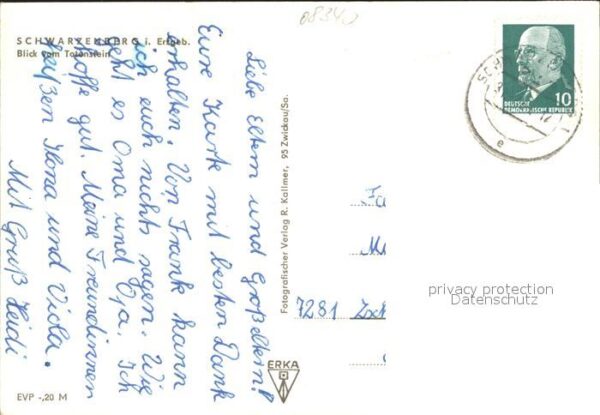 08340
SCHWARZENBERG i. Erzgeb.
Blick vom Totenstein
Liebe Eltern und Großeltern!
Eure Karte mit besten Dank
erhalten. Von Frank kann
ich euch nichts sagen. Wie
geht es Oma und Opa. Ich
hoffe gut. Meine Freundinnen
heißen Ilona und Viola.
Mit Gruß Heidi
EVP -,20 M
Fotografischer Verlag R. Kallmer, 95 Zwickau/Sa.
ERKA
10
DEUTSCHE
DEMOKRATISCHE REPUBLIK
SCH
e
Fa
7281 Zsch
privacy protection
Datenschutz